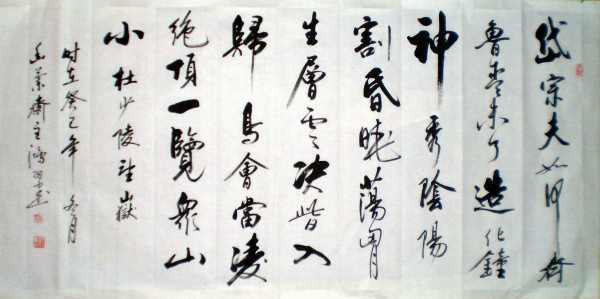 岱宗夫如何齊
魯青未了造化鐘
神秀陰陽
割昏曉蕩胷
生層雲決眥入
歸鳥會當凌
絶頂一覽衆山
小 杜少陵望嶽
時在癸巳年冬月
齋主鴻